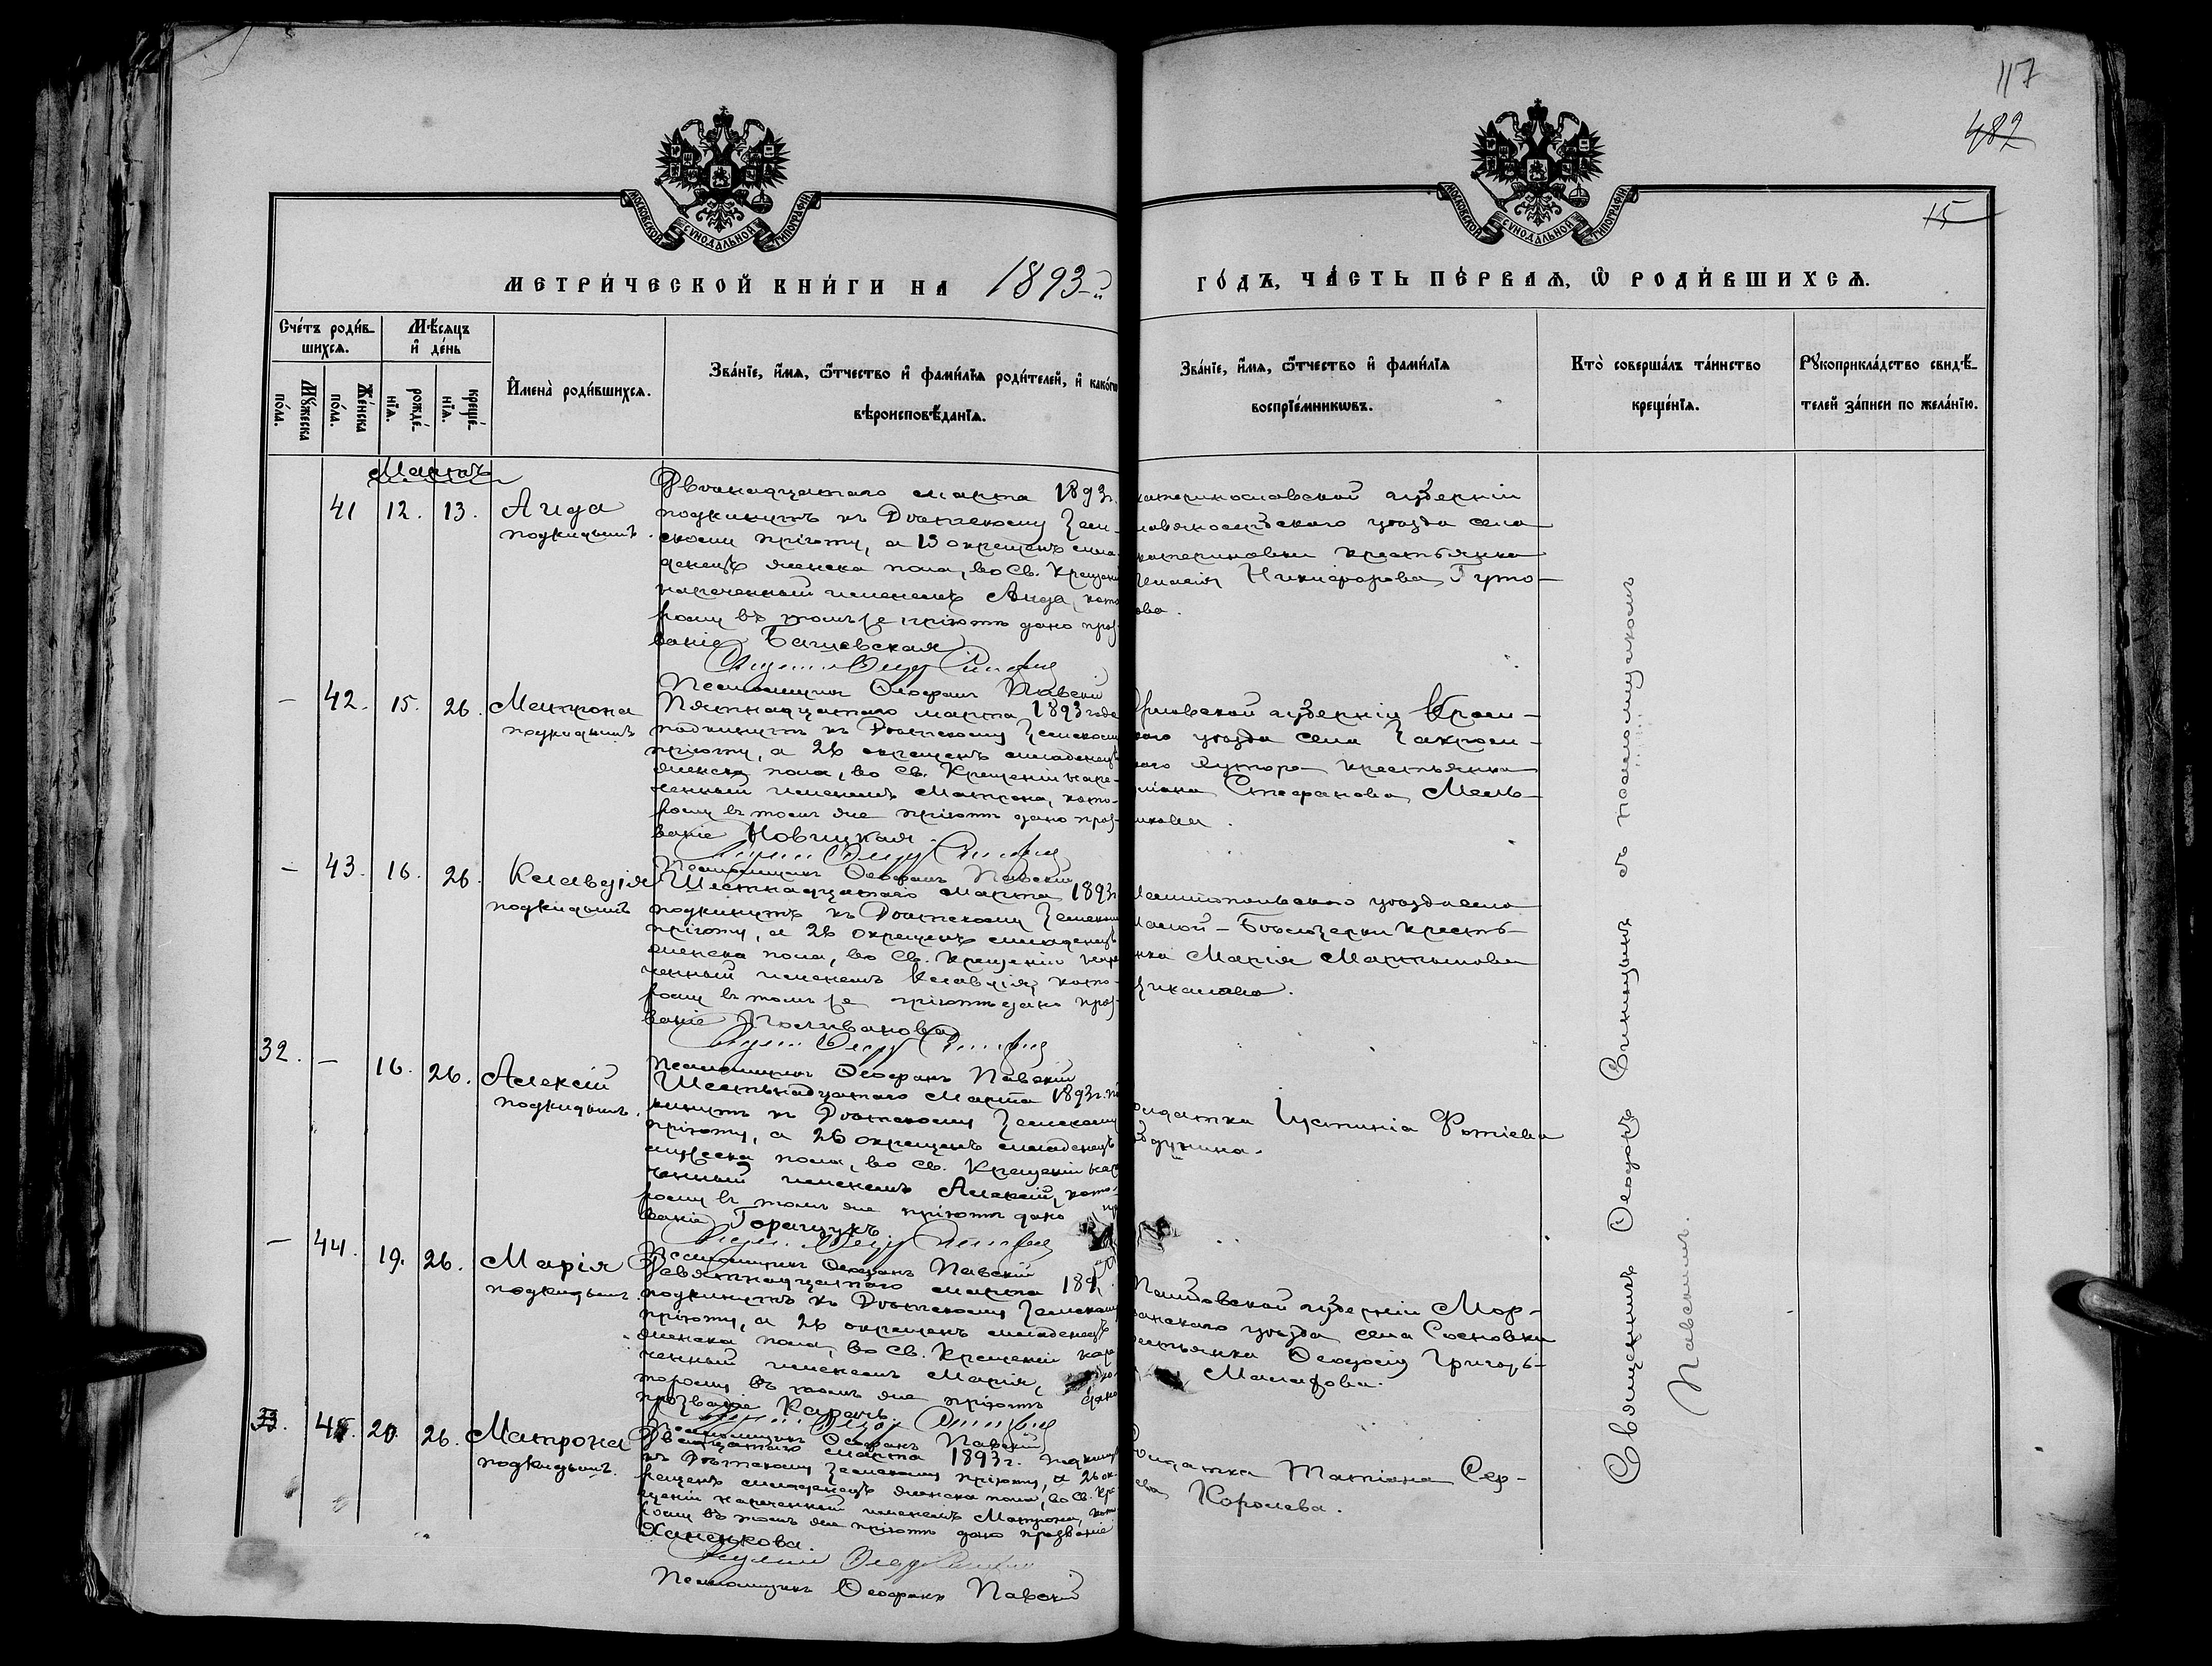 117
482
15
МОСКОВСКОЙ СѴНОДАЛЬНОЙ ТИПОГРАФІИ
МОСКОВСКОЙ СѴНОДАЛЬНОЙ ТИПОГРАФІИ
МЕТРИ́ЧЕСКОЙ КНИ́ГИ НА 1893
ГО́ДЪ, ЧА́СТЬ ПЕ́РВАѦ, Ѿ РОДИ́ВШИХСѦ.
Сче́тъ роди́в-
шихсѧ.
Мѣ́сѧцъ
и҆ де́нь
Мꙋ́жеска
по́ла.
Же́нска
по́ла.
рожде́-
нїѧ.
креще́-
нїѧ.
И҆мена̀ роди́вшихсѧ.
Зва́нїе, и҆́мѧ, ѻ҆́тчество и҆ фами́лїѧ роди́телей, и҆ како́гѡ
вѣроисповѣ́данїѧ.
Зва́нїе, и҆́мѧ, ѻ҆́тчество и҆ фами́лїѧ
воспрїе́мникѡвъ.
Кто̀ соверша́лъ та́инство
креще́нїѧ.
Рꙋкоприкла́дство свидѣ́-
телей за́писи по жела́нїю.
Мартъ
41 12. 13. Аида
подкидышъ.
Двѣнадцатаго марта 1893 г.
подкинутъ къ Дѣтскому Зем-
скому пріюту, а 13 окрещенъ мла-
денецъ женска пола, во Св. Крещеніи
нареченный именемъ Аида, кото
рому въ томъ же пріютѣ дано проз-
ваніе
Псаломщикъ Ѳеофанъ Павскій
катеринославской губерніи
уѣзда села
катериновки крестьянка
Никифорова Гуто-
ова.
– 42. 15. 26. Матрона
подкидышъ
Пятнадцатаго марта 1893 года
подкинутъ къ Дѣтскому Земскому
пріюту, а 26 окрещенъ младенецъ
женска пола, во Св. Крещеніи наре-
ченный именемъ Матрона, кото-
рому въ томъ же пріютѣ дано проз-
ваніе Новицкая.
Псаломщикъ Ѳеофанъ Павскій
Орловской губерніи Кром-
каго уѣзда села Закром-
каго хутора крестьянка
Стефанова Мель-
никова.
– 43. 16. 26. Клавдія
подкидышъ
Шестнадцатаго марта 1893 г.
подкинутъ къ Дѣтскому Земскому
пріюту, а 26 окрещенъ младенецъ
женска пола, во Св. Крещеніи наре
ченный именемъ Клавдія, кото-
рому въ томъ же пріютѣ дано проз-
ваніе Поливанова
Псаломщикъ Ѳеофанъ Павскій
Мелитопольскаго уѣзда села
Малой-Бѣлозерки кресть-
нка Марія Мартынова
32. – 16. 26. Алексій
подкидышъ.
Шестьнадцатаго Марта 1893 г. под
кинутъ къ Дѣтскому Земскому
пріюту, а 26 окрещенъ младенецъ
мужеска пола, во Св. Крещеніи наре
ченный именемъ Алексій, кото-
рому въ томъ же пріютѣ дано
ваніе Горащукъ.
Псаломщикъ Ѳеофанъ Павскій
олдатка Іустинія Фотіева
– 44. 19. 26. Марія
подкидышъ.
Девятнадцатаго марта 189
подкинутъ къ Дѣтскому Земскому
пріюту, а 26 окрещенъ младенецъ
женска пола, во Св. Крещеніи наре
ченный именемъ Марія,
торому въ томъ же пріютѣ дано
прозваніе Карачъ.
Псаломщикъ Ѳеофанъ Павскій
Тамбовской губерніи Мор-
шанскаго уѣзда села Сосновки
рестьянка Ѳеодосія Григорь-
Малафова.
33. 45. 20. 26. Матрона
подкидышъ.
Двадцатаго марта 1893 г. подкинутъ
къ Дѣтскому Земскому пріюту, а 26 ок-
рещенъ младенецъ женска пола, во Св. Кре
щеніи нареченный именемъ Матрона, кото
рому въ томъ же пріютѣ дано прозваніе
Ханенкова.
Псаломщикъ Ѳеофанъ Павскій
олдатка Татіана Сер-
ева Королева.
Священникъ Ѳеодоръ Синицынъ съ псаломщикомъ
Павскимъ.